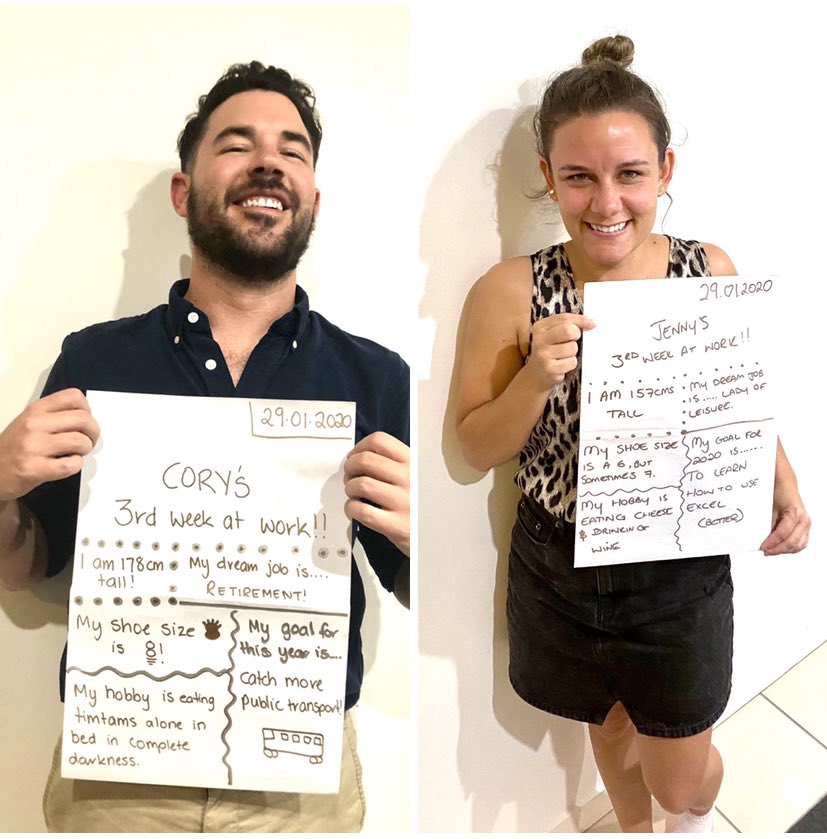 29.01.2020
CORY'S
3rd week at work!!
I am 178cm
tall!
My dream job is....
RETIREMENT!
My shoe size
is 8!
My goal for
this year is....
catch more
public transport!
My hobby is eating
timtams alone in
bed in complete
darkness.
29.01.2020
JENNY'S
3RD WEEK AT WORK!!
I AM 157CMS
TALL
MY DREAM JOB
IS..... LADY OF
LEISURE.
MY SHOE SIZE
IS A 6, BUT
SOMETIMES 7.
MY GOAL FOR
2020 IS......
TO LEARN
HOW TO USE
EXCEL
(BETTER)
MY HOBBY IS
EATING CHEESE
& DRINKING
WINE